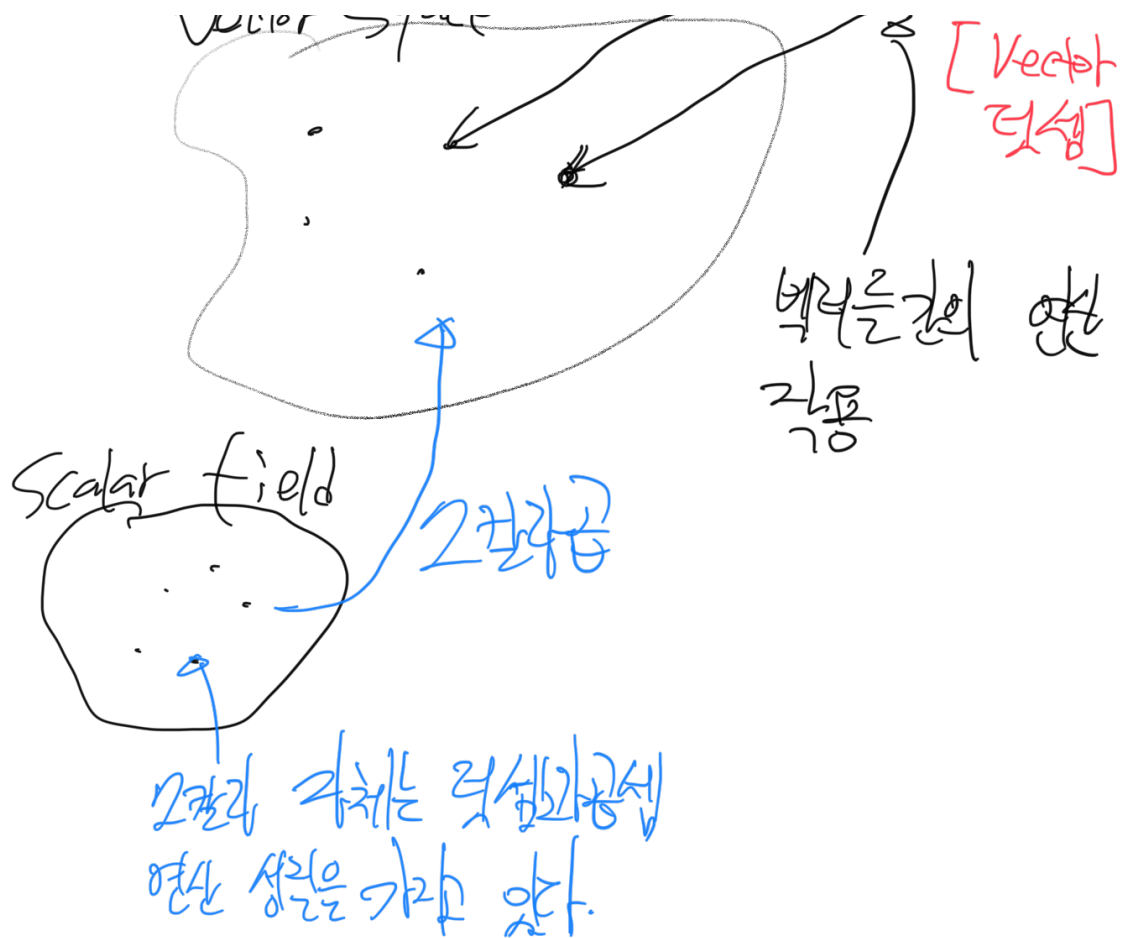 Vector Space
[Vector
덧셈]
벡터들간의 연산
작용
Scalar field
스칼라곱
스칼라 자체는 덧셈과곱셈
연산 성질을 가지고 있다.